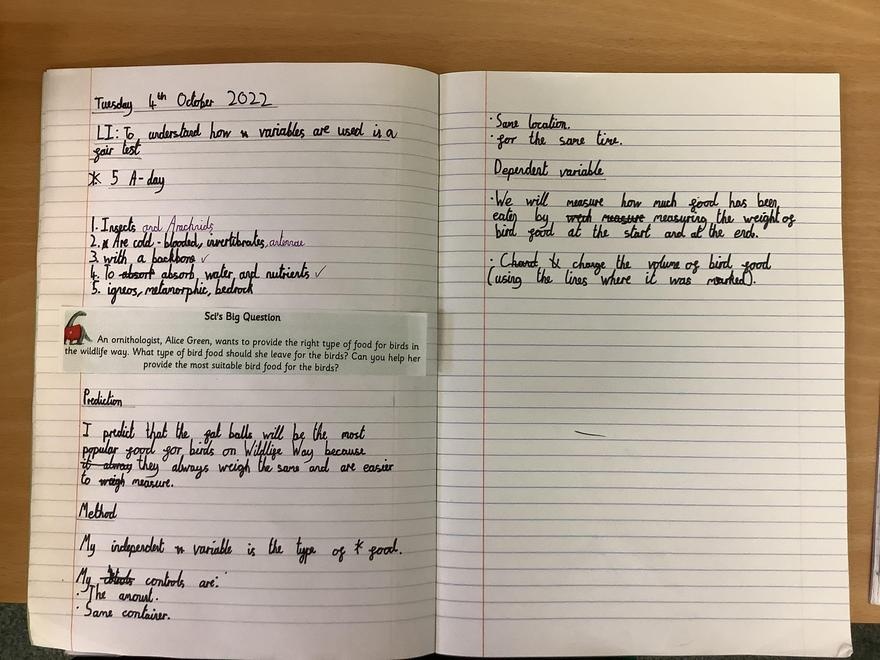 Tuesday 4th October 2022
LI: To understand how variables are used is a
fair test
5 A-day
1. Insects and Arachnids
2. Are cold-blooded, invertibrates, antennae
3. with a backbone ✓
4. To absort absorb, water, and nutrients ✓
5. igneos, metamorphic, bedrock
Sci's Big Question
An ornithologist, Alice Green, wants to provide the right type of food for birds in
the wildlife way. What type of bird food should she leave for the birds? Can you help her
provide the most suitable bird food for the birds?
Prediction
I predict that the fat balls will be the most
popular food for birds on Wildlife Way because
it alway they always weigh the same and are easier
to weigh measure.
Method
My independent variable is the type of food.
My controls are:
· The amount.
· Same container.
· Same location.
· for the same time.
Dependent variable
· We will measure how much food has been
eaten by measure measuring the weight of
bird food at the start and at the end.
· change the volume of bird food
(using the lines where it was marked).